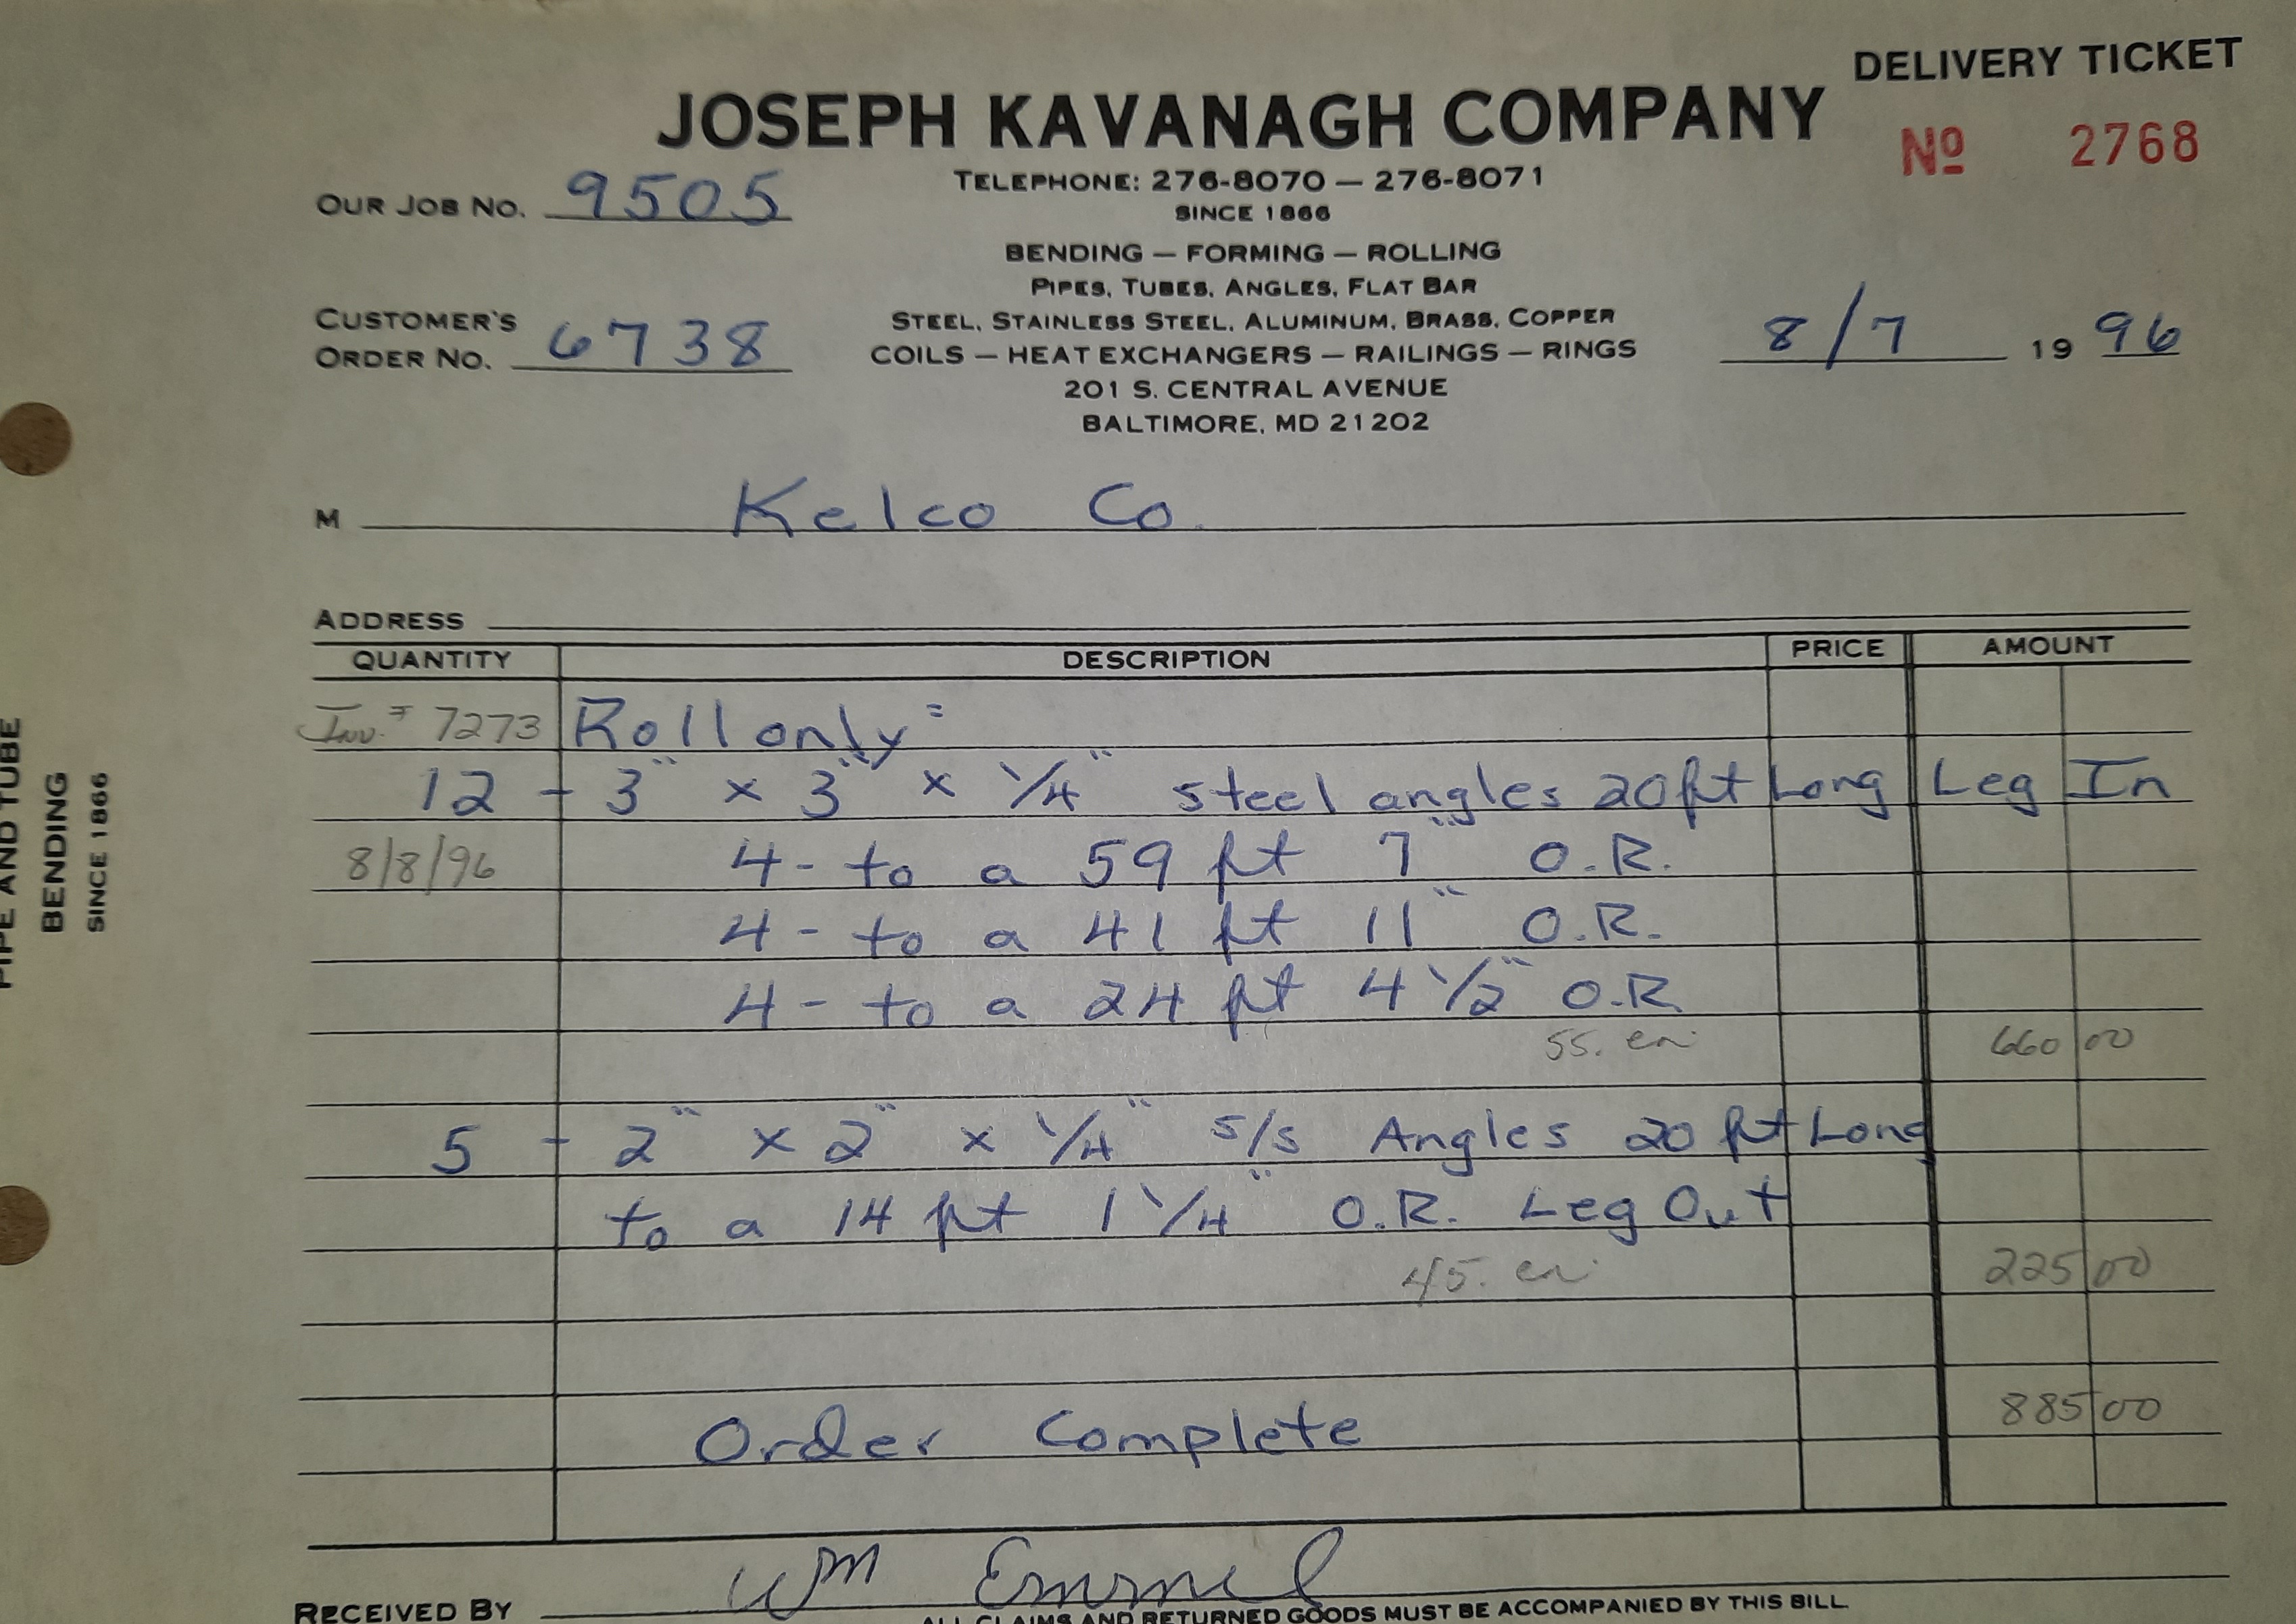 DELIVERY TICKET
JOSEPH KAVANAGH COMPANY
Nº 2768
TELEPHONE: 276-8070 — 276-8071
OUR JOB NO. 9505
SINCE 1866
BENDING — FORMING — ROLLING
PIPES, TUBES, ANGLES, FLAT BAR
STEEL, STAINLESS STEEL, ALUMINUM, BRASS, COPPER
CUSTOMER'S
ORDER NO. 6738
COILS — HEAT EXCHANGERS — RAILINGS — RINGS
8/7 19 96
201 S. CENTRAL AVENUE
BALTIMORE, MD 21202
M Kelco Co.
ADDRESS
QUANTITY DESCRIPTION PRICE AMOUNT
Inv. # 7273 Roll only:
12 - 3" x 3" x 1/4" steel angles 20 ft Long Leg In
8/8/96 4- to a 59 ft 7" O.R.
4- to a 41 ft 11" O.R.
4- to a 24 ft 4 1/2" O.R
55. ea 660 00
5 - 2" x 2" x 1/4" s/s Angles 20 ft Long
to a 14 ft 1 1/4" O.R. Leg Out
45. ea 225 00
885 00
Order Complete
RECEIVED BY Wm Emmel
ALL CLAIMS AND RETURNED GOODS MUST BE ACCOMPANIED BY THIS BILL
PIPE AND TUBE
BENDING
SINCE 1866